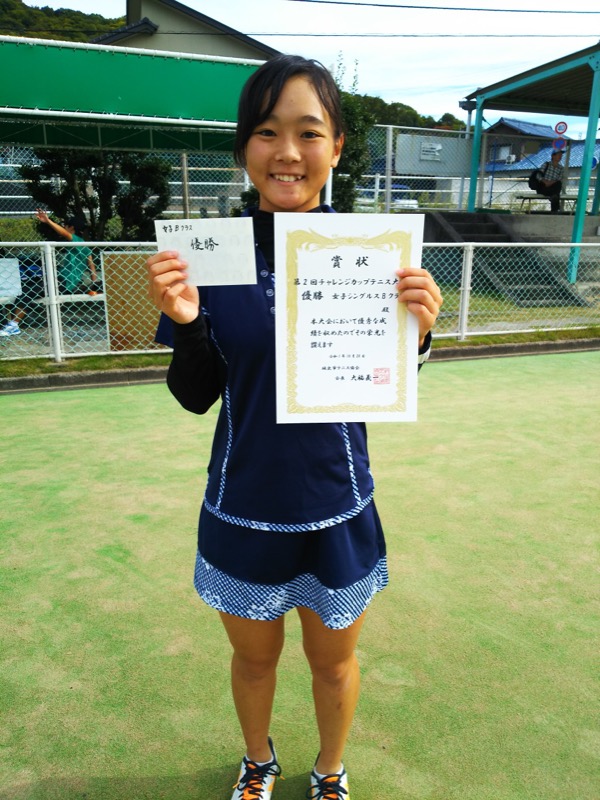 女子Bクラス
優勝
賞状
第2回チャレンジカップテニス大
優勝 女子シングルスBクラ
殿
本大会において優秀な成
績を収めたのでその栄光を
讃えます
令和1年10月20日
テニス協会
会長 大福義一